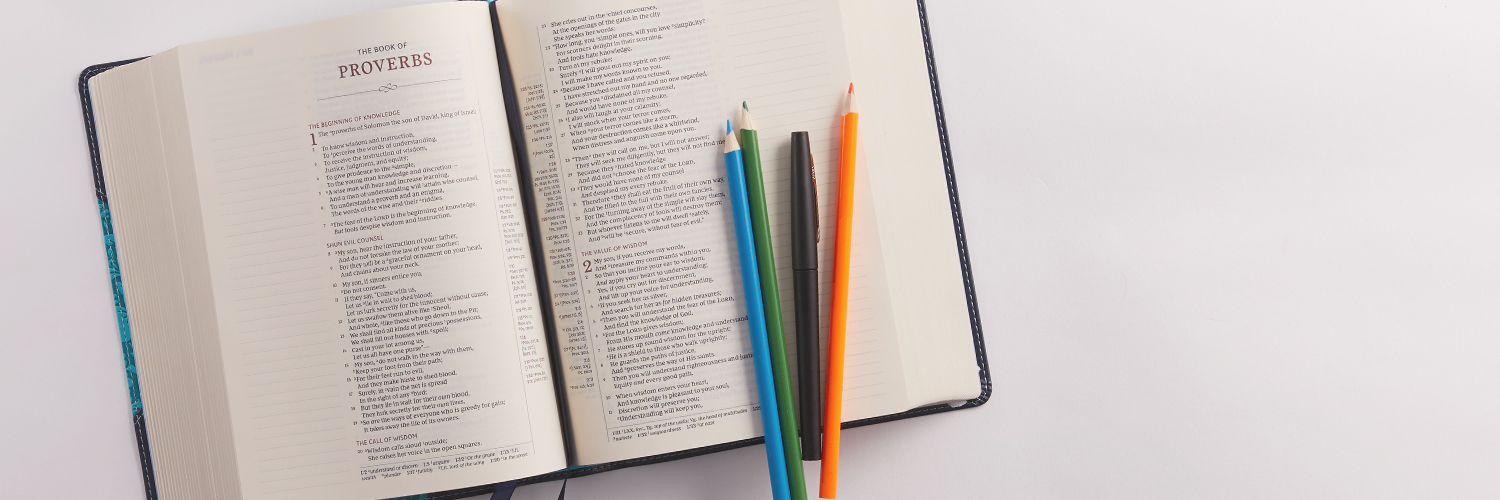 THE BOOK OF
PROVERBS
THE BEGINNING OF KNOWLEDGE
1 The proverbs of Solomon the son of David, king of Israel:
2 To know wisdom and instruction,
To perceive the words of understanding,
3 To receive the instruction of wisdom,
Justice, judgment, and equity;
4 To give prudence to the simple,
To the young man knowledge and discretion—
5 A wise man will hear and increase learning,
And a man of understanding will attain wise counsel,
6 To understand a proverb and an enigma,
The words of the wise and their riddles.
7 The fear of the LORD is the beginning of knowledge,
But fools despise wisdom and instruction.
SHUN EVIL COUNSEL
8 My son, hear the instruction of your father,
And do not forsake the law of your mother;
9 For they will be a graceful ornament on your head,
And chains about your neck.
10 My son, if sinners entice you,
Do not consent.
11 If they say, "Come with us,
Let us lie in wait to shed blood;
Let us lurk secretly for the innocent without cause;
12 Let us swallow them alive like Sheol,
And whole, like those who go down to the Pit;
13 We shall find all kinds of precious possessions,
We shall fill our houses with spoil;
14 Cast in your lot among us,
Let us all have one purse"—
15 My son, do not walk in the way with them,
Keep your foot from their path;
16 For their feet run to evil,
And they make haste to shed blood.
17 Surely, in vain the net is spread
In the sight of any bird;
18 But they lie in wait for their own blood,
They lurk secretly for their own lives.
19 So are the ways of everyone who is greedy for gain;
It takes away the life of its owners.
THE CALL OF WISDOM
20 Wisdom calls aloud outside;
She raises her voice in the open squares.
21 She cries out in the chief concourses,
At the openings of the gates in the city
She speaks her words:
22 "How long, you simple ones, will you love simplicity?
For scorners delight in their scorning,
And fools hate knowledge.
23 Turn at my rebuke;
Surely I will pour out my spirit on you;
I will make my words known to you.
24 Because I have called and you refused,
I have stretched out my hand and no one regarded,
25 Because you disdained all my counsel,
And would have none of my rebuke,
26 I also will laugh at your calamity;
I will mock when your terror comes,
27 When your terror comes like a storm,
And your destruction comes like a whirlwind,
When distress and anguish come upon you.
28 "Then they will call on me, but I will not answer;
They will seek me diligently, but they will not find me.
29 Because they hated knowledge
And did not choose the fear of the LORD,
30 They would have none of my counsel
And despised my every rebuke.
31 Therefore they shall eat the fruit of their own way,
And be filled to the full with their own fancies.
32 For the turning away of the simple will slay them,
And the complacency of fools will destroy them;
33 But whoever listens to me will dwell safely,
And will be secure, without fear of evil."
THE VALUE OF WISDOM
2 My son, if you receive my words,
And treasure my commands within you,
2 So that you incline your ear to wisdom,
And apply your heart to understanding;
3 Yes, if you cry out for discernment,
And lift up your voice for understanding,
4 If you seek her as silver,
And search for her as for hidden treasures;
5 Then you will understand the fear of the LORD,
And find the knowledge of God.
6 For the LORD gives wisdom;
From His mouth come knowledge and understand
7 He stores up sound wisdom for the upright;
He is a shield to those who walk uprightly;
8 He guards the paths of justice,
And preserves the way of His saints.
9 Then you will understand righteousness and justi
Equity and every good path.
10 When wisdom enters your heart,
And knowledge is pleasant to your soul,
11 Discretion will preserve you;
Understanding will keep you,